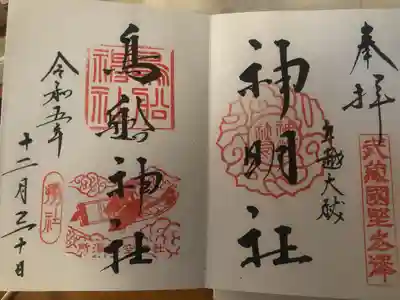 奉拝
武蔵國野老澤
年越大祓
神明社
鳥船神社
令和五年
十二月三十日